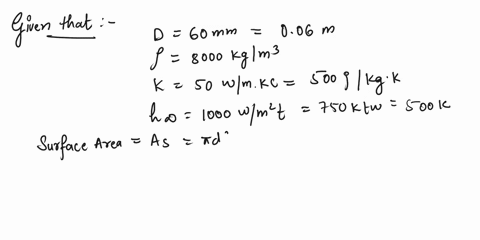 Given that :-
D = 60 mm = 0.06 m
ρ = 8000 kg/m³
K = 50 w/m.KC = 500 J/kg.K
h∞ = 1000 w/m²t = 750 K tw = 500 K
Surface Area = As = πd²